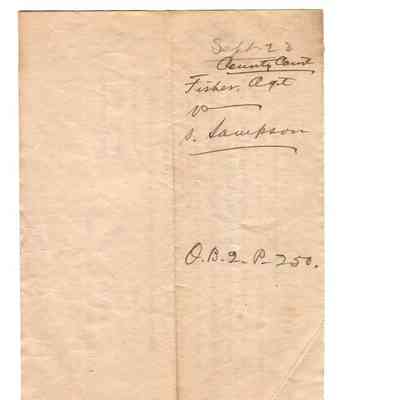 Sept. 23
County Court
Fisher. Agt
vs
S. Sampson
O.B.2-P-250.